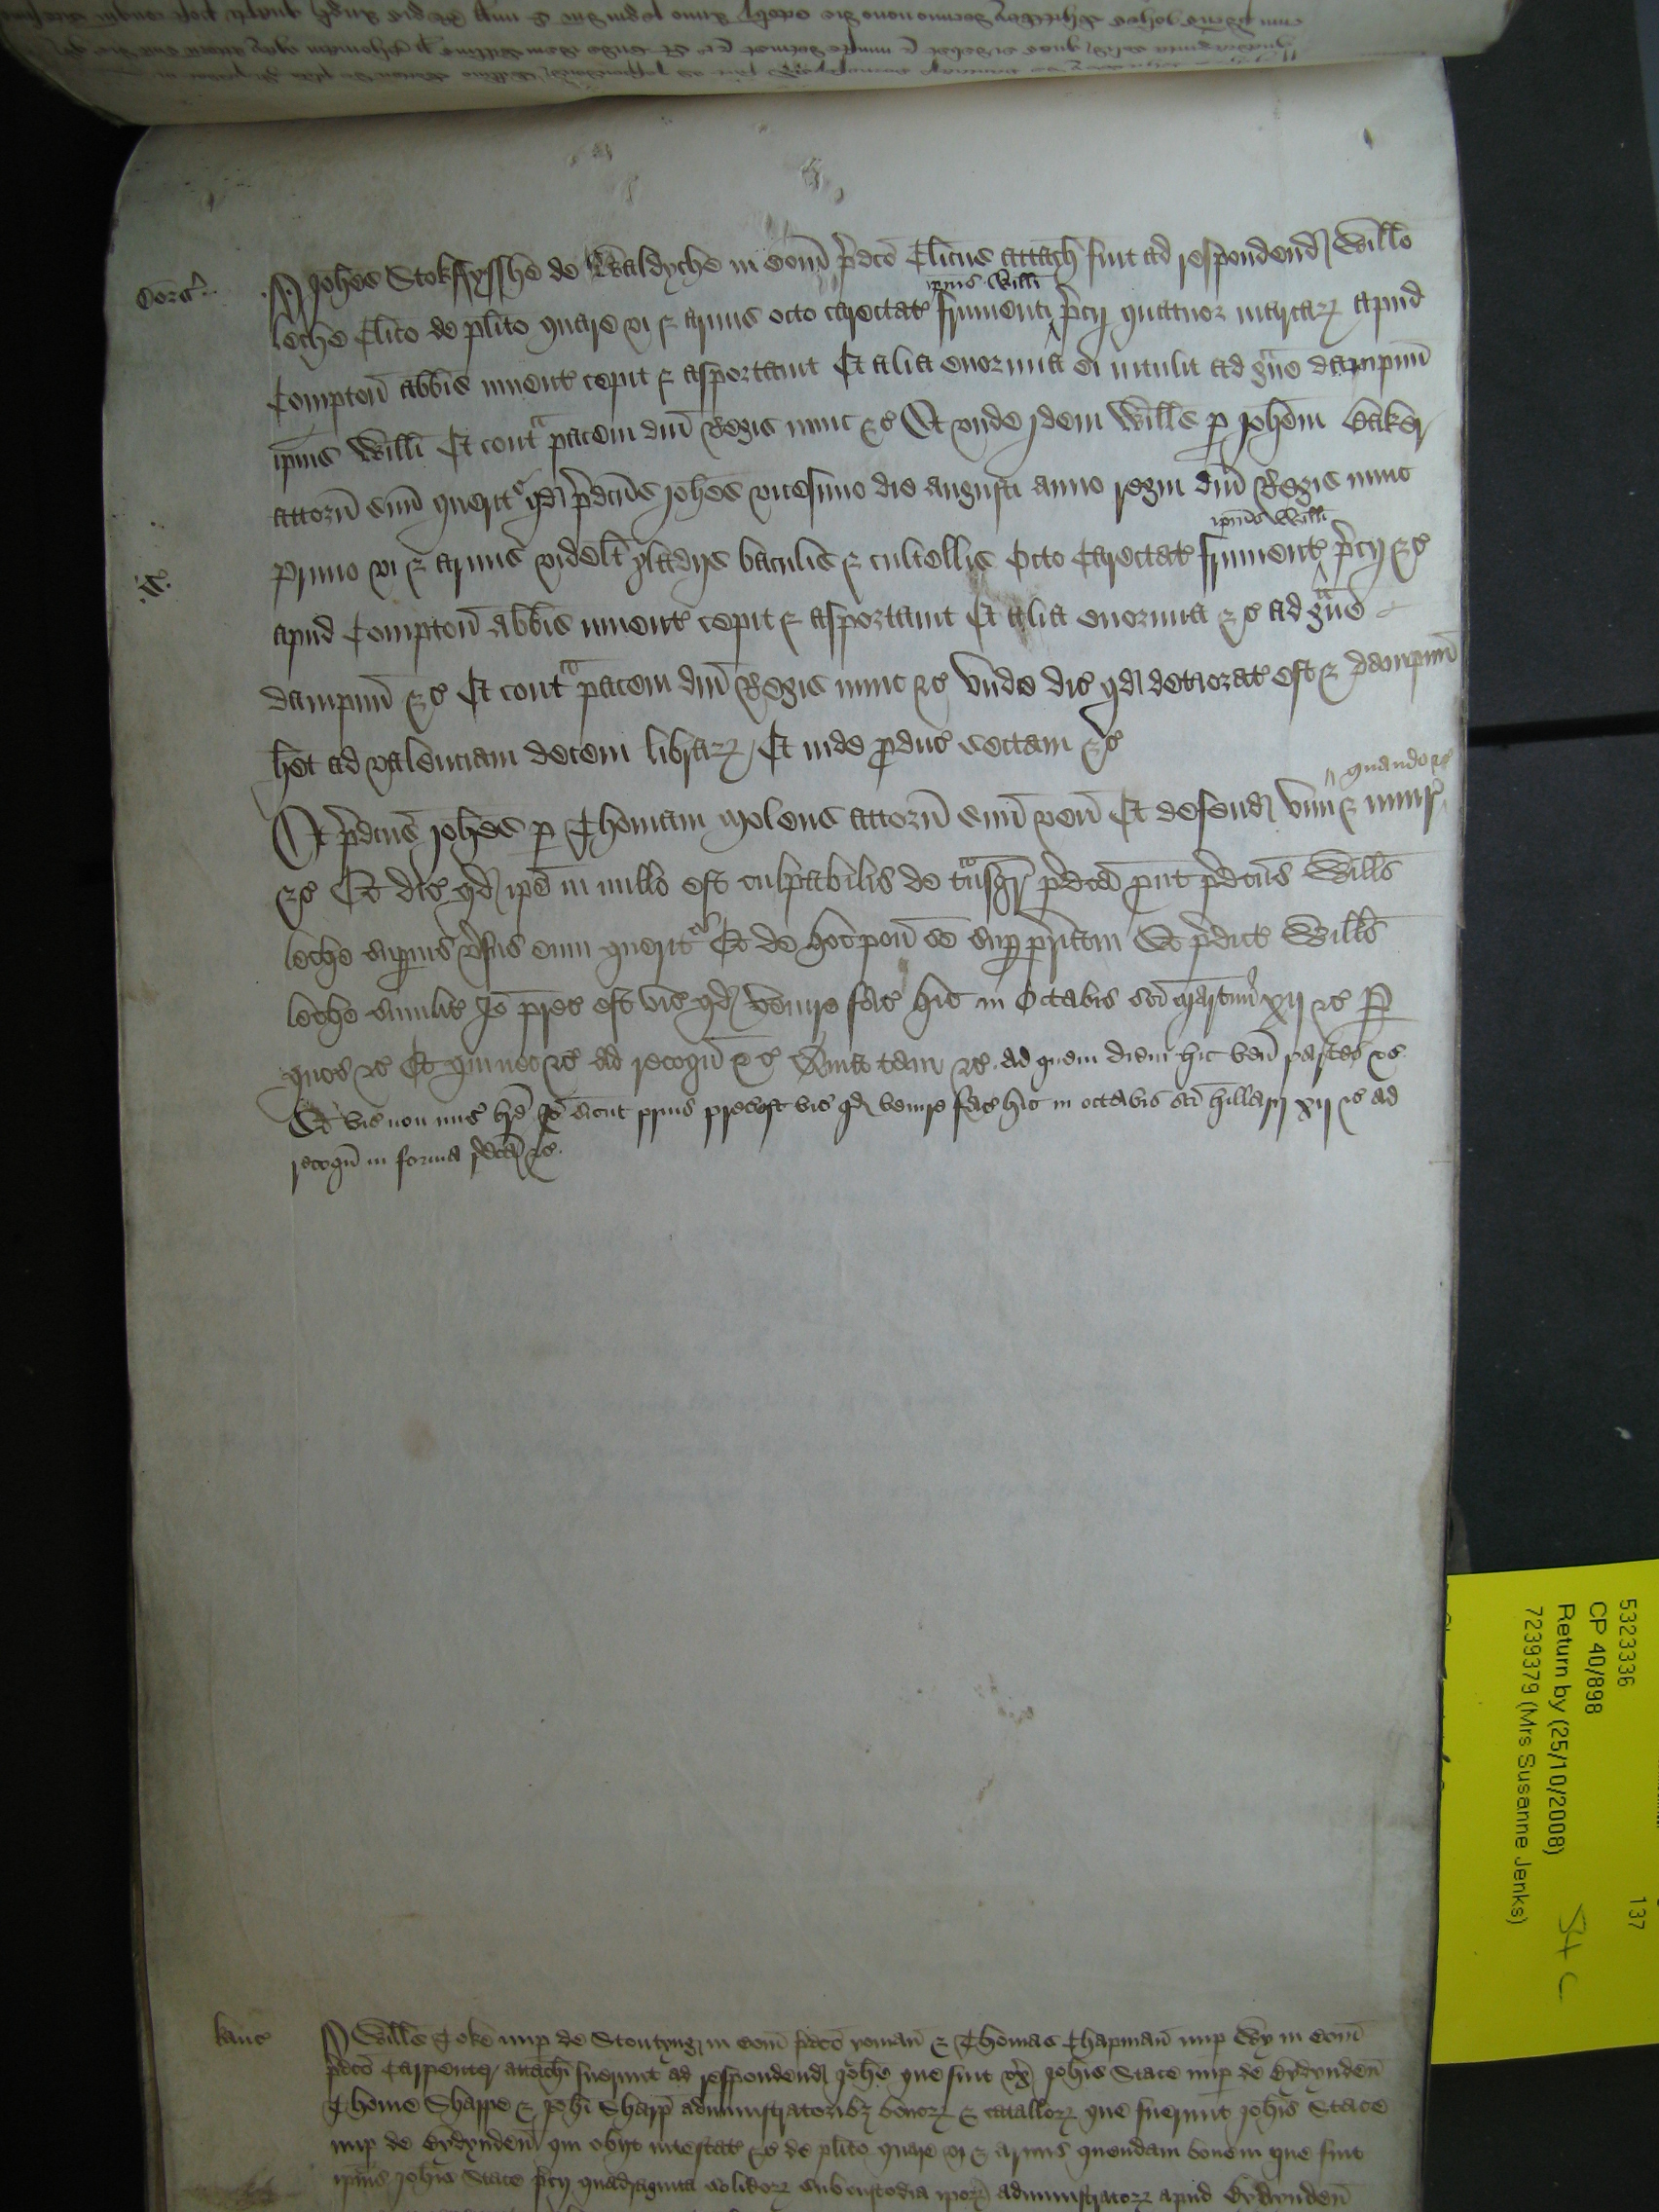 Dors'
Johes Stokffysshe de Baldyche in Com p̄dco Clicus attach fuit ad respondend Willo
ipius Willi
leche Clico de plito quare vi & armis octo carectat frumenti p̄cij quatuor marcaꝝ apud
Compton abbis invent cepit & asportavit Et alia enormia ei intulit ad gᵃve dampnum
ipius Willi Et contᵃ pacem dni Regis nunc &c Et unde idem Wills p Johem Baker
attorn suu querit qd p̄dcus Johes vicesimo die Augusti anno regni dni Regis nunc
ipius Willi
primo vi & armis videlt gladijs baculis & cultellis Octo Carectat frument p̄cij &c
.S.
apud Compton Abbis invent cepit & asportavit Et alia enormia &c ad gᵃve
dampnu &c Et contᵃ pacem dni Regis nunc &c Unde dic qd deteriorat est & dampnu
het ad valenciam decem libraꝝ Et inde pduc sectam &c
quando &c
Et p̄dcus Johes p Thomam Molens attorn suu ven Et defend vim & iniur
&c Et dic qd ipe in nullo est culpabilis de tᵃnsgr p̄dca put p̄dcus Wills
leche supius v̄sus eum querit Et de hoc pon se sup p̄riam Et p̄dict Wills
leche similit Io prec est vic qd venire fac hic in Octabis sci Martini xij &c P
quos &c Et qui nec &c Ad recogn &c Quia tam &c Ad quem diem hic ven partes &c
Et vic non mis bre Io sicut prius prec est vic qd venire fac hic in octabis sci hillarij xij &c ad
recogn in forma p̄dca &c
kanc
Wills Coke nup de Stoutyng in Com p̄dco yoman & Thomas Chapman nup Wy in Com
p̄dco Carpenter attachi fuerunt ad respondend Johe que fuit ux Johis Stace nup de Bydynden
Thome Sharpe & Johi Sharp administratoribꝫ bonoꝝ & catalloꝝ que fuerunt Johis Stace
nup de Bydynden qui obijt intestat &c de plito quare vi & armis quendam bovem que fuit
ipius Johis Stace p̄cij quadraginta solidoꝝ sub custodia ipoꝝ administratoꝝ apud Bydynden
5323336
CP 40/898
Return by (25/10/2008)
7239379 (Mrs Susanne Jenks)
137